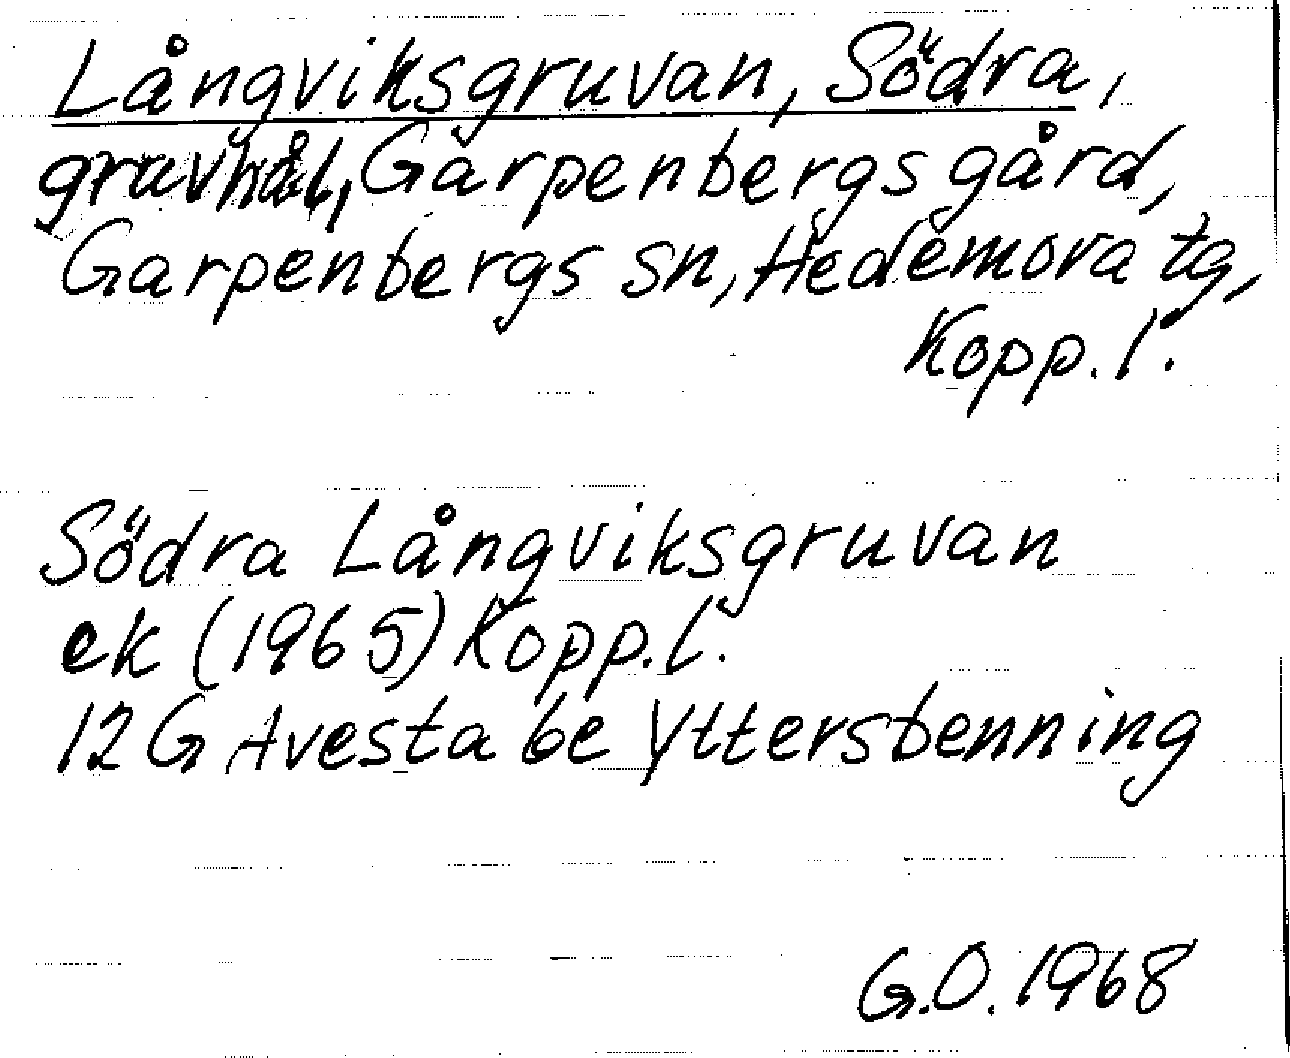 Långviksgruvan, Södra,
gruvhål, Garpenbergs gård,
Garpenbergs sn, Hedemora tg,
Kopp. l.
Södra Långviksgruvan
ek (1965) Kopp. l.
12 G Avesta 6e Yttersbenning
G.O. 1968